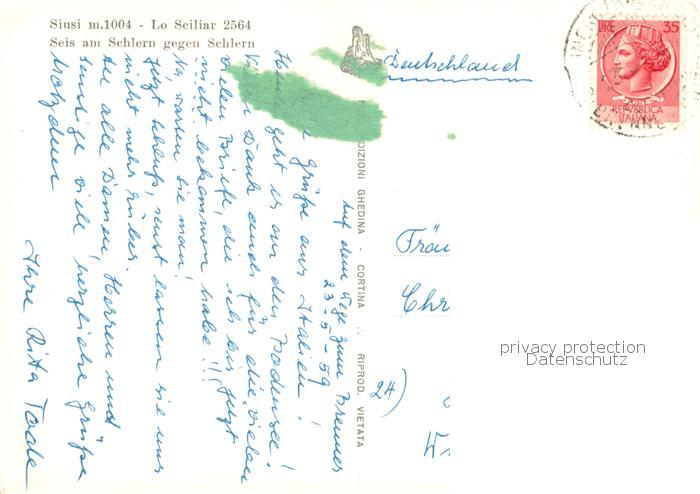 Siusi m.1004 - Lo Sciliar 2564
Seis am Schlern gegen Schlern
Deutschland
LIRE 35
REPUBBLICA
ITALIANA
EDIZIONI GHEDINA - CORTINA
RIPROD. VIETATA
Auf dem Wege zum Brenner
23-5-59
Grüße aus Italien!
geht es an den Bodensee!
Dank auch für die vielen
vielen Briefe, die ich bis jetzt
nicht bekommen habe!!!
Na warten Sie man!
Jetzt lassen Sie uns
nicht mehr rüber.
An alle Damen, Herren und
sonstige viele herzliche Grüße
trotzdem
Ihre Rita
Fräu
Chr
24)
W
privacy protection
Datenschutz